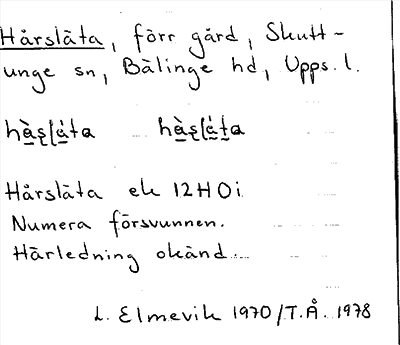 Hårsläta, förr gård, Skutt-
unge sn, Bälinge hd, Upps. l.
Hårsläta ek 12H0i
Numera försvunnen.
Härledning okänd.
L. Elmevik 1970/T.Å. 1978